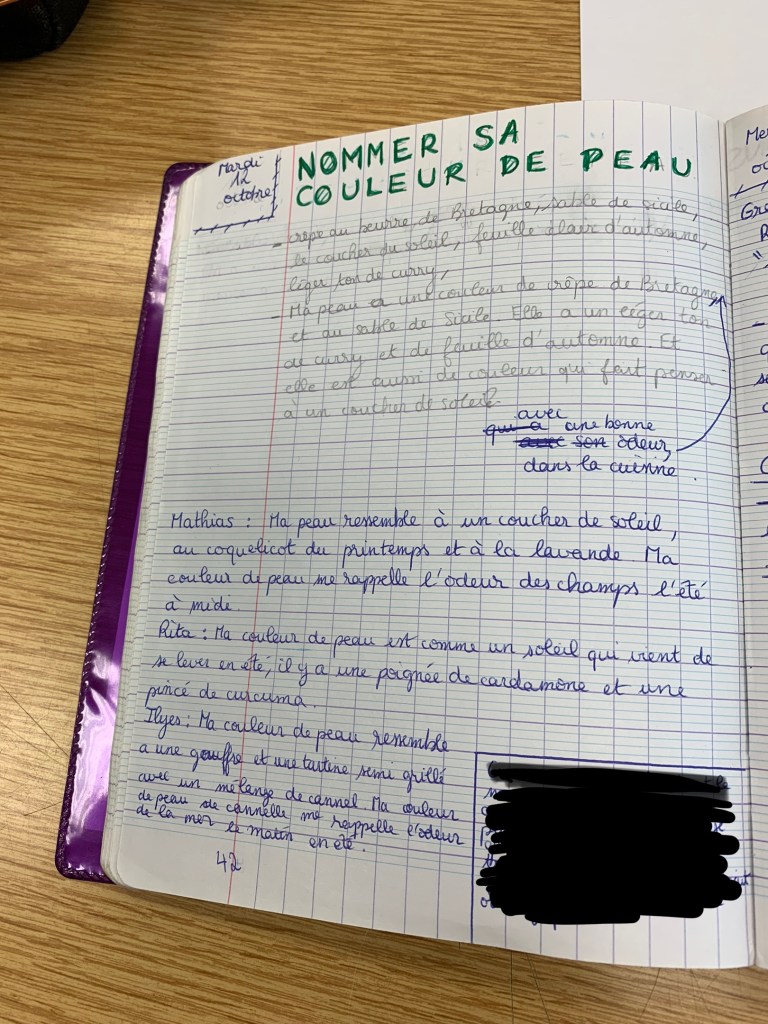 Mardi
12
octobre
NOMMER SA
COULEUR DE PEAU
- crêpe au beurre de Bretagne, sable de sicile,
le coucher du soleil, feuille clair d'automne,
léger ton de curry,
- Ma peau a une couleur de crêpe de Bretagne
et du sable de Sicile. Elle a un léger ton
de curry et de feuille d'automne. Et
elle est aussi de couleur qui fait penser
à un coucher de soleil.
avec
qui a une bonne
avec son odeur,
dans la cuisine.
Mathias : Ma peau ressemble à un coucher de soleil,
au coquelicot du printemps et à la lavande. Ma
couleur de peau me rappelle l'odeur des champs l'été
à midi.
Rita : Ma couleur de peau est comme un soleil qui vient de
se lever en été, il y a une poignée de cardamone et une
pincé de curcuma.
Ilyes : Ma couleur de peau ressemble
a une gauffre et une tartine semi grillé
avec un mélange de cannel Ma couleur
de peau de cannelle me rappelle l'odeur
de la mer le matin en été.
42